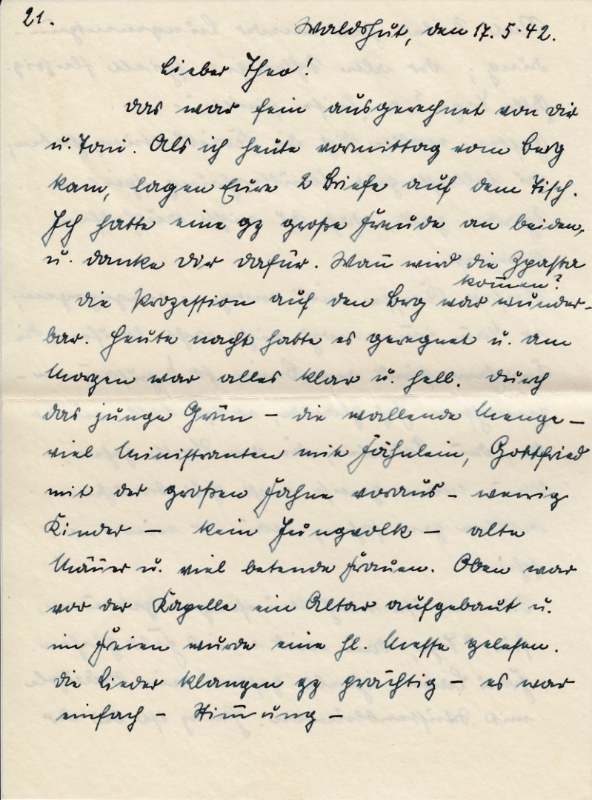 21.
Waldshut, den 17.5.42.
Lieber Theo!
Das war fein ausgerechnet von Dir
u. Toni. Als ich heute vormittag vom Berg
kam, lagen Eure 2 Briefe auf dem Tisch.
Ich hatte eine gz große Freude an beiden,
u. danke Dir dafür. Wan̄ wird die
kom̄en?
Die Prozession auf den Berg war wunder-
bar. Heute nacht hatte es geregnet u. am
Morgen war alles klar u. hell. Durch
das junge Grün – die wallende Menge –
viel Ministranten mit Fähnlein, Gottfried
mit der großen Fahne voraus – wenig
Kinder – kein Jungvolk – alte
Män̄er u. viel betende Frauen. Oben war
vor der Kapelle ein Altar aufgebaut u.
im Freien wurde eine hl. Messe gelesen.
Die Lieder klangen gz prächtig – es war
einfach – Stim̄ung –